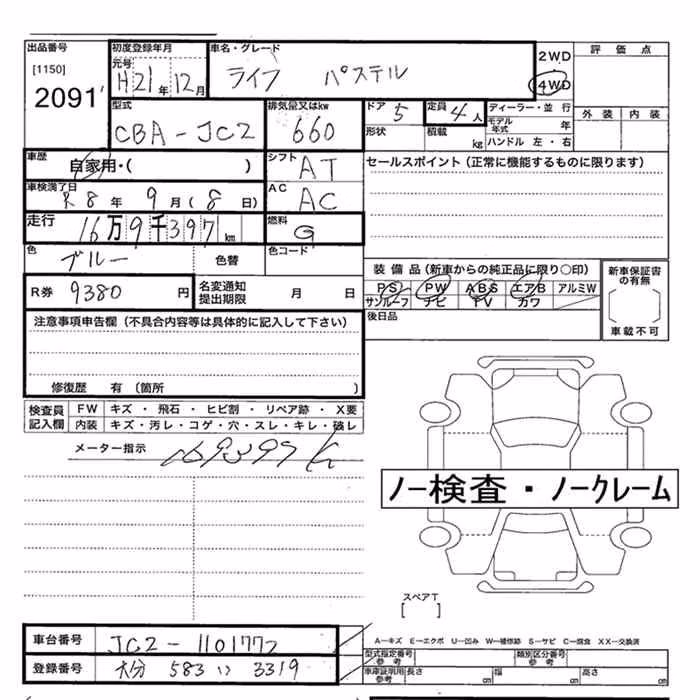 出品番号
[1150]
2091
初度登録年月
元号
H21年12月
車名・グレード
ライフ パステル
2WD
4WD
評価点
外装 内装
型式
CBA-JC2
排気量又はkw
660
ドア 5
定員 4人
形状
積載 kg
ディーラー・並行
モデル年式 年
ハンドル 左・右
車歴
自家用・( )
シフト AT
セールスポイント(正常に機能するものに限ります)
車検満了日
R8年 9月(8日)
AC AC
走行 16万9千397km
燃料 G
色 ブルー 色替
色コード
装備品(新車からの純正品に限り○印)
PS PW ABS エアB アルミW
サンルーフ ナビ TV カワ
新車保証書の有無
車載不可
R券 9380円
名変通知提出期限 月 日
後日品
注意事項申告欄(不具合内容等は具体的に記入して下さい)
修復歴 有(箇所 )
検査員記入欄
FW キズ・飛石・ヒビ割・リペア跡・X要
内装 キズ・汚レ・コゲ・穴・スレ・キレ・破レ
メーター指示 169397k
ノー検査・ノークレーム
スペアT
[ ]
A-キズ E-エクボ U-凹み W-補修跡 S-サビ C-腐食 XX-交換済
車台番号 JC2-1101772
型式指定番号参考
類別区分番号参考
登録番号 大分 583 い 3319
車庫証明用参考 長さ cm 幅 cm 高さ cm